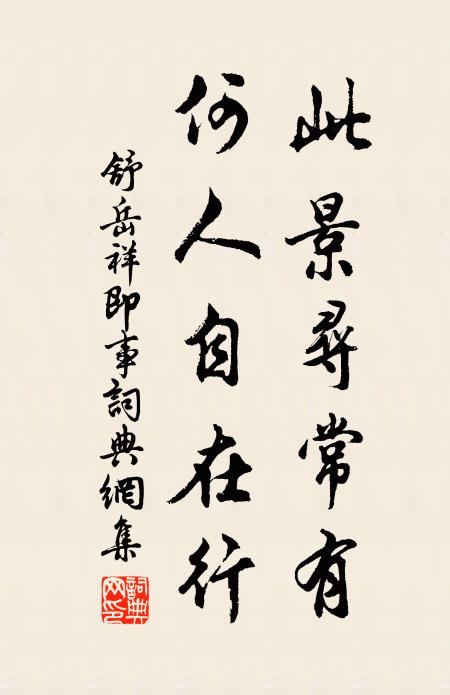 此景尋常有
何人自在行
舒岳祥即事詞典網集
詞典網印